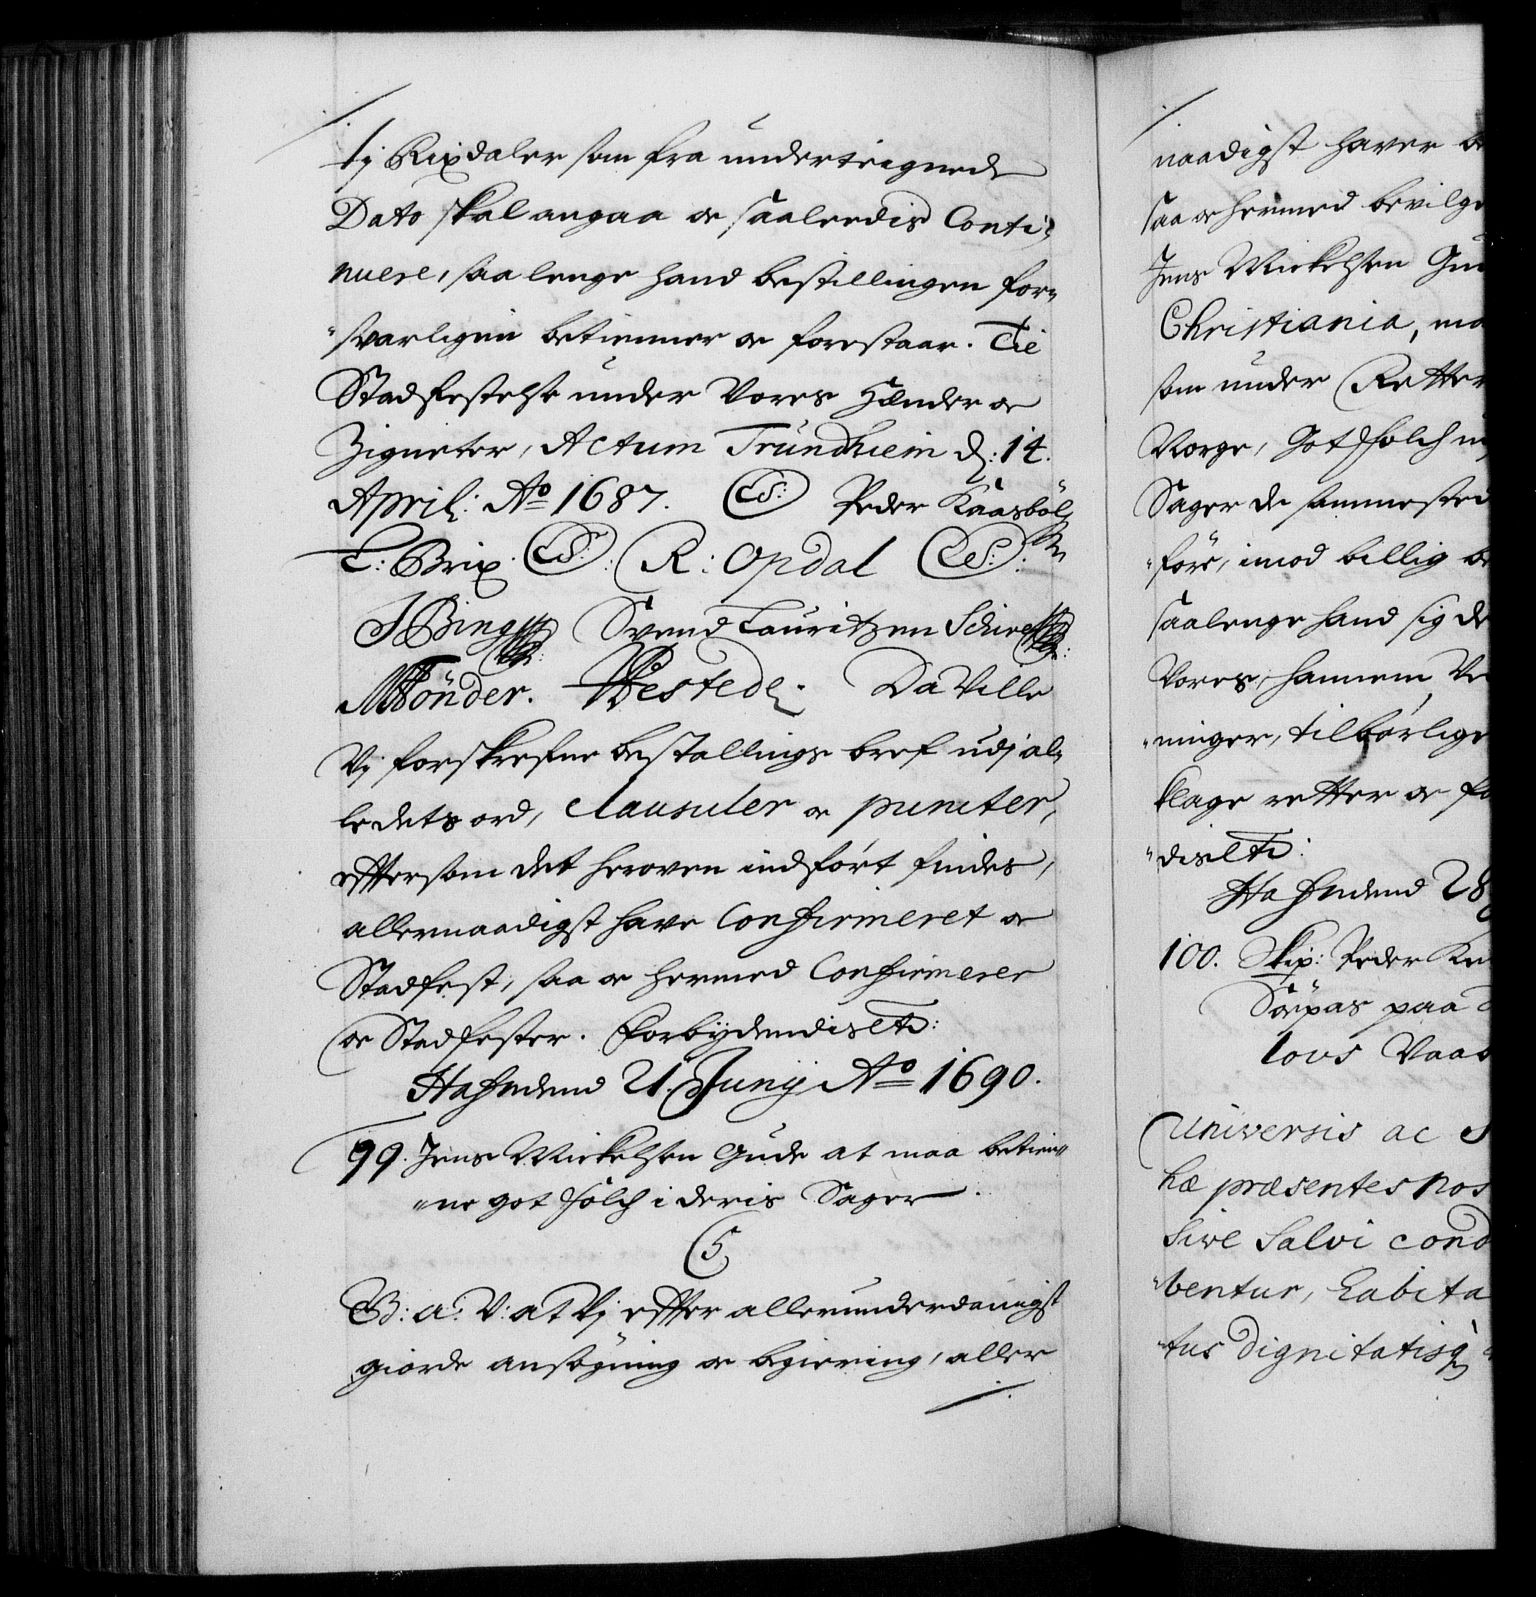 tj Rixdaler som fra underteignede
Dato skal angaa oc saaleedis Conti-
nuere, saa lenge hand bestillingen for-
svarligen betienner oc forestaar. Til
Stadfestelse under Vores Hænder oc
Zigneter, Actum Trundhiem d: 14.
April: Ao 1687. LS: Peder Kaasböl
C: Brix. LS: R: Opdal LS:
J Bing Svend Lauritzen Schive
M Tönder. Westede. DaVille
Vj forskrefne bestallings bref udj al-
le dets ord, clausuler oc puncter,
effter som det heroven indfört findes,
allernaadigst have Confirmeret oc
Stadfest, saa oc hermed Confirmerer
oc Stadfester. Forbydendis etc:
Hafn 21. Junij Ao 1690.
99. Jens Mickelsen Gude at maa betien-
ne got folch i deris Sager.
C5
G: a: V: at Vj effter allerunderdanigst
giorde ansögning oc begiering, aller
naadigst haver be
saa oc hermed bevilge
Jens Mickelsen Gu
Christiania, ma
som under Retter
Norge, Got folch u
Sager de sammested
före, imod billig be
saalenge hand sig de
Vores, hannem Ve
ninger, tilbörlige
klage retter oc fo
dis etc:
Hafn 28
100. Skip: Peder Kn
Söepas paa
lovs Vaab
Universis ac S
hæ præsentes nos
sive Salvi cond
bentur, habita
tus Dignitatisq